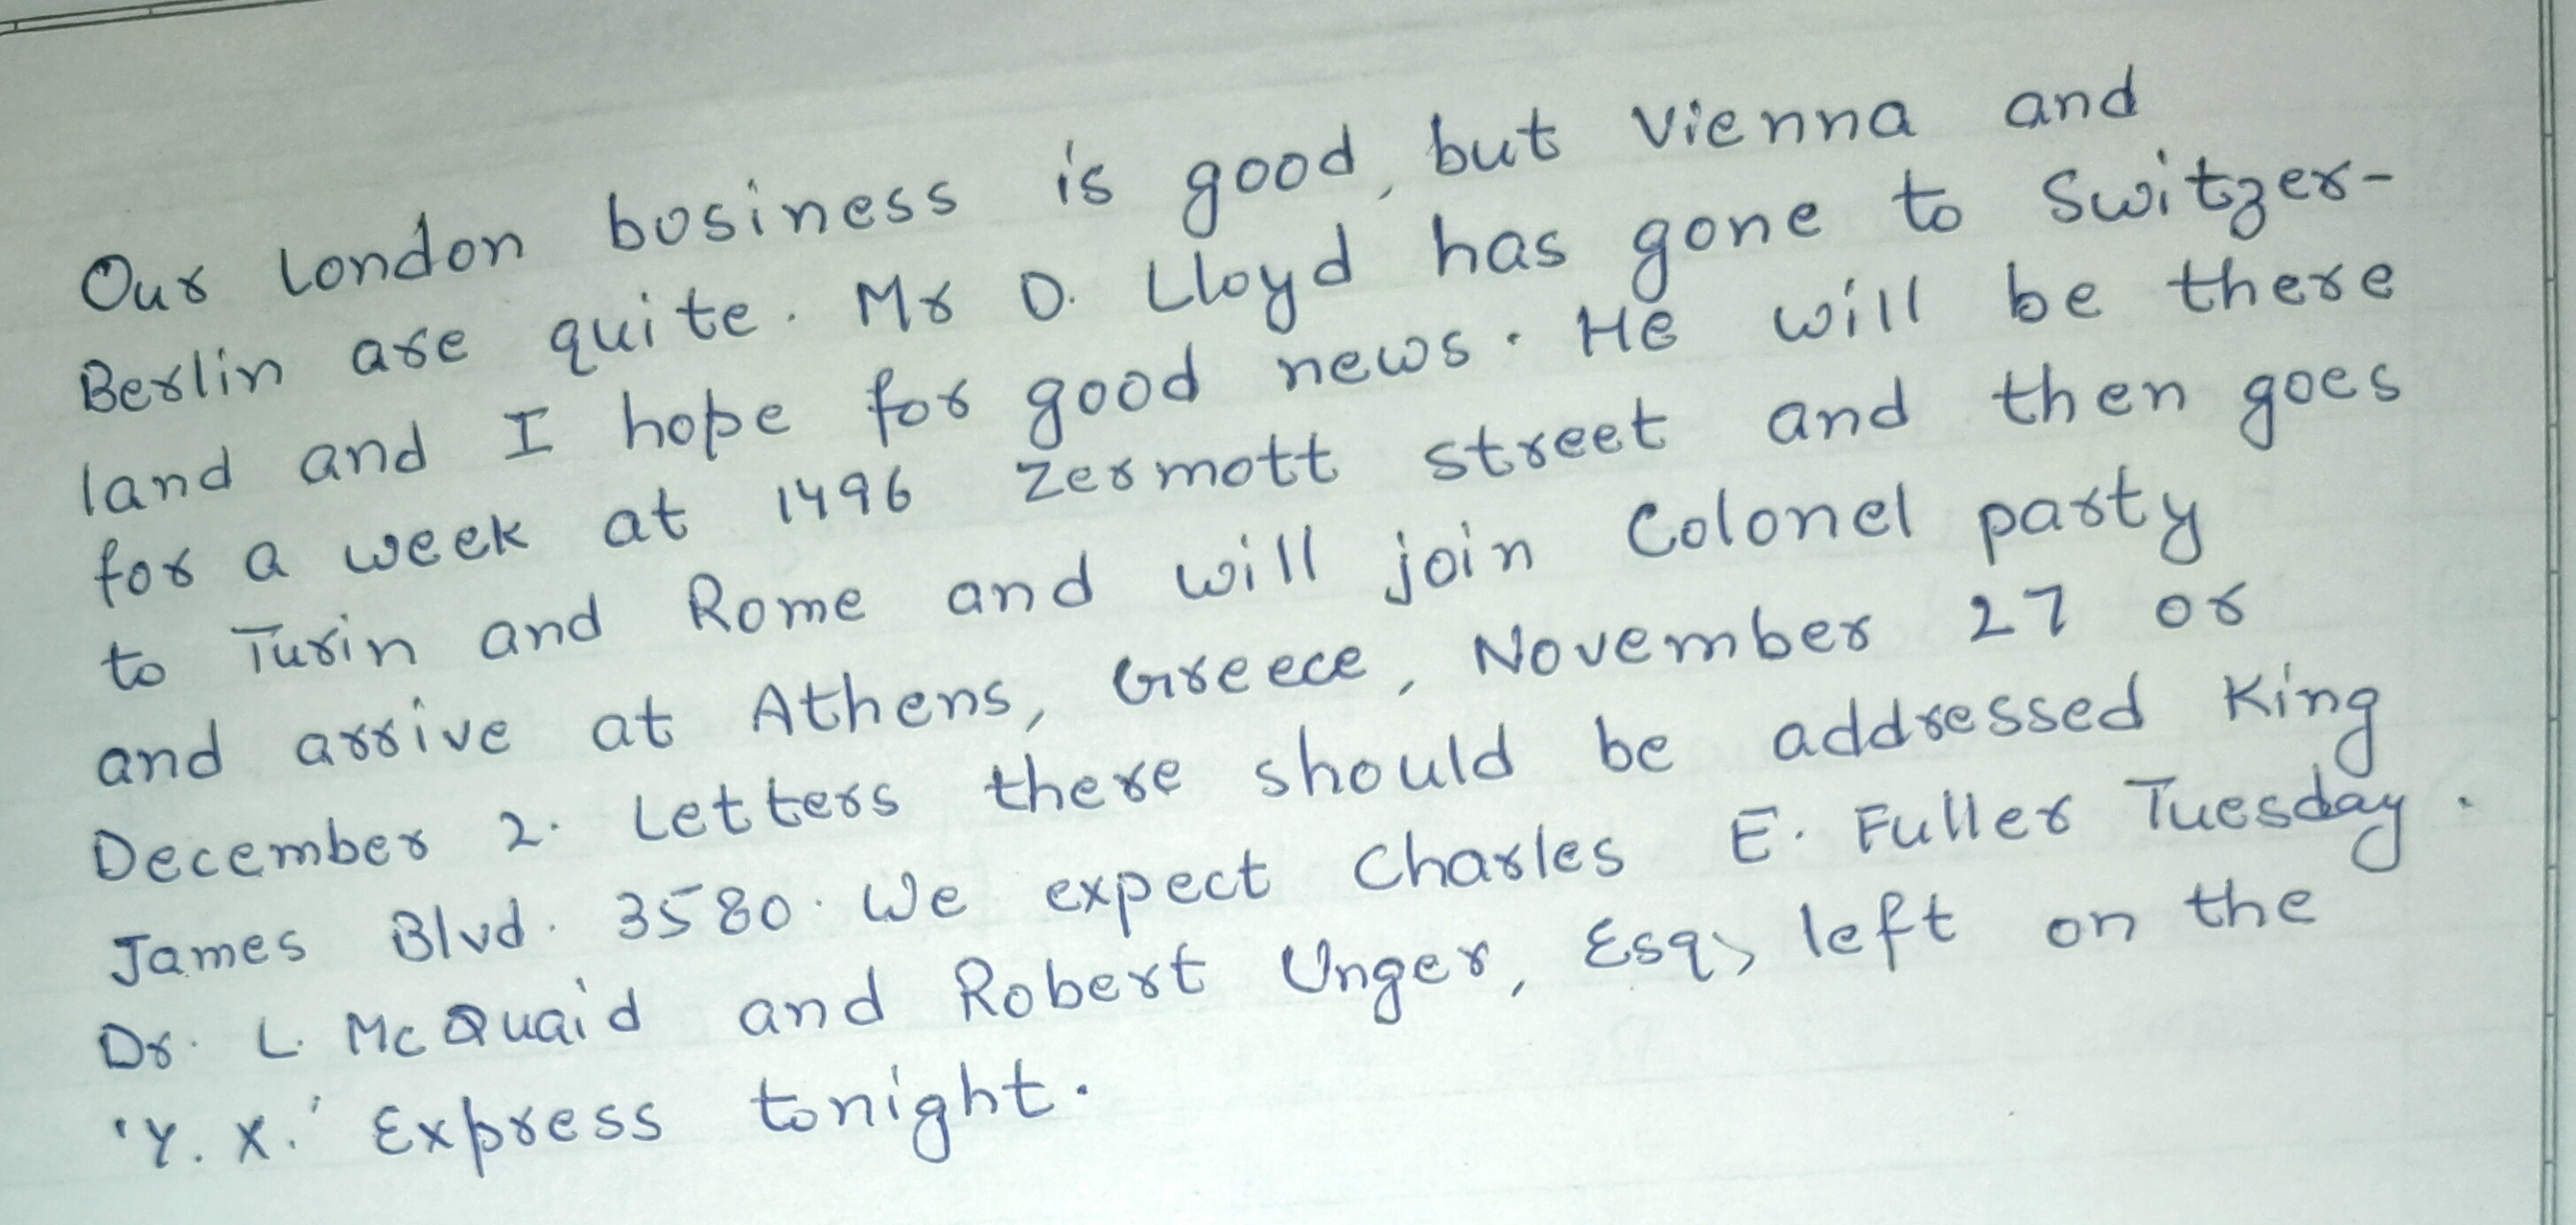 Our London business is good, but Vienna and
Berlin are quite. Mr D. Lloyd has gone to Switzer-
land and I hope for good news. He will be there
for a week at 1496 Zermott street and then goes
to Turin and Rome and will join Colonel party
and arrive at Athens, Greece, November 27 or
December 2. Letters there should be addressed King
James Blvd. 3580. We expect Charles E. Fuller Tuesday.
Dr. L. McQuaid and Robert Unger, Esq, left on the
'Y. X.' Express tonight.